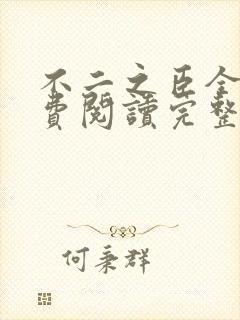 不二之臣全
費閱讀完整
何秉群